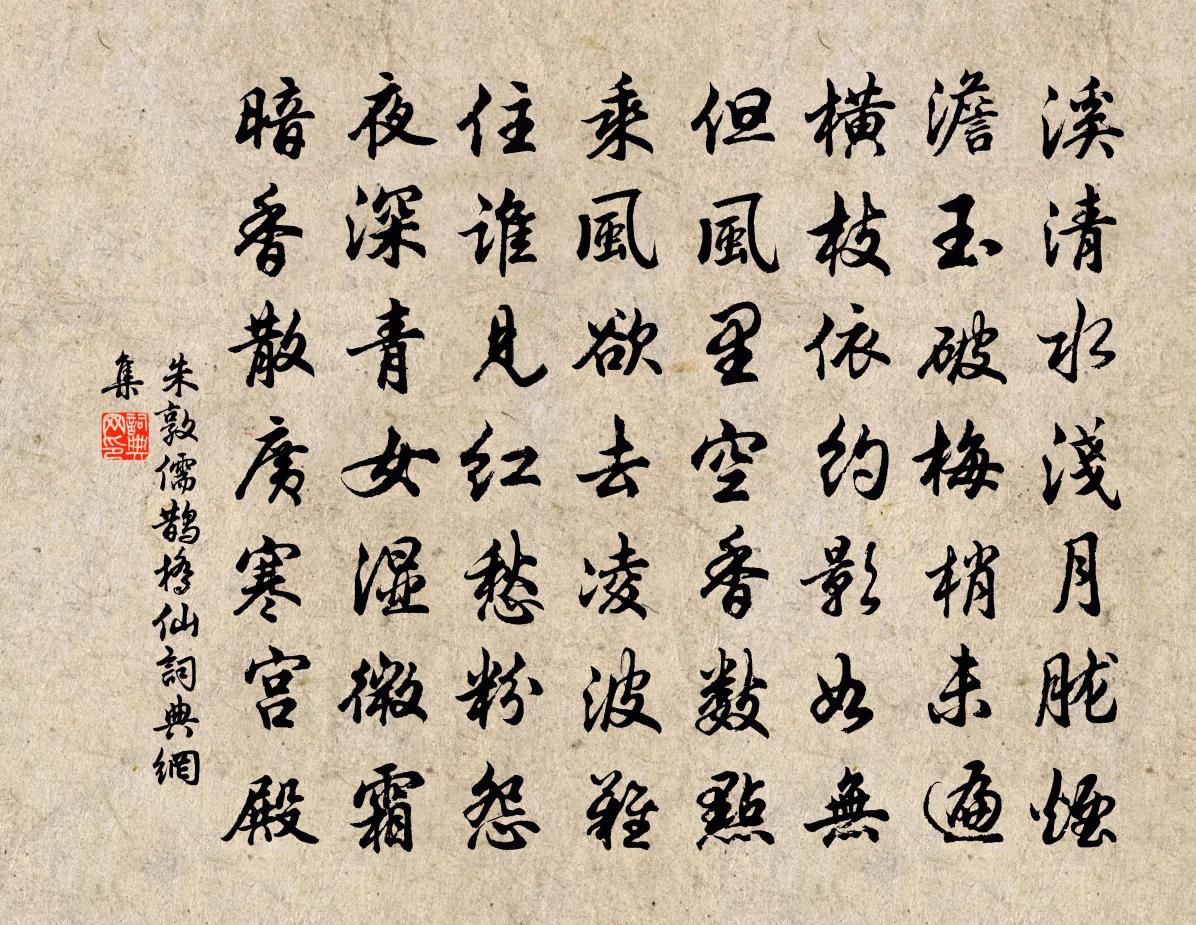 溪清水淺月朧煙
澹玉破梅梢未遍
橫枝依約影如無
但風里空香數點
乘風欲去凌波難
住誰見紅愁粉怨
夜深青女湿微霜
暗香散廣寒宮殿
朱敦儒鵲橋仙詞典網
集
詞典网印